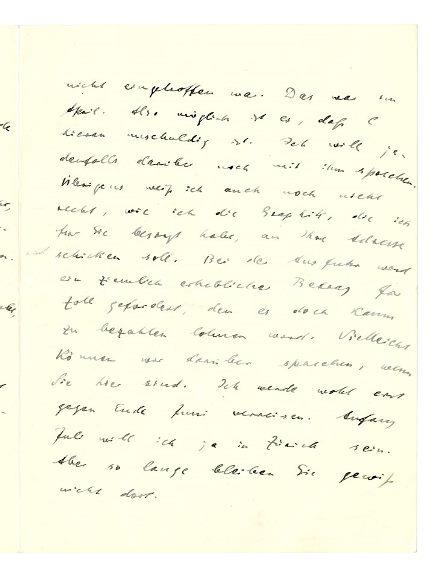 nicht eingetroffen war. Das war im
April. Also möglich ist es, daß C
hieran unschuldig ist. Ich will je-
denfalls darüber noch mit ihm sprechen.
Übrigens weiß ich auch noch nicht
recht, wie ich die Graphik, die ich
für Sie besorgt habe, an Ihre Adresse
schicken soll. Bei der Ausfuhr wird
ein ziemlich erheblicher Betrag für
Zoll gefordert, den es doch kaum
zu bezahlen lohnen würde. Vielleicht
können wir darüber sprechen, wenn
Sie hier sind. Ich werde wohl erst
gegen Ende Juni verreisen. Anfang
Juli will ich ja in Zürich sein.
Aber so lange bleiben Sie gewiß
nicht dort.